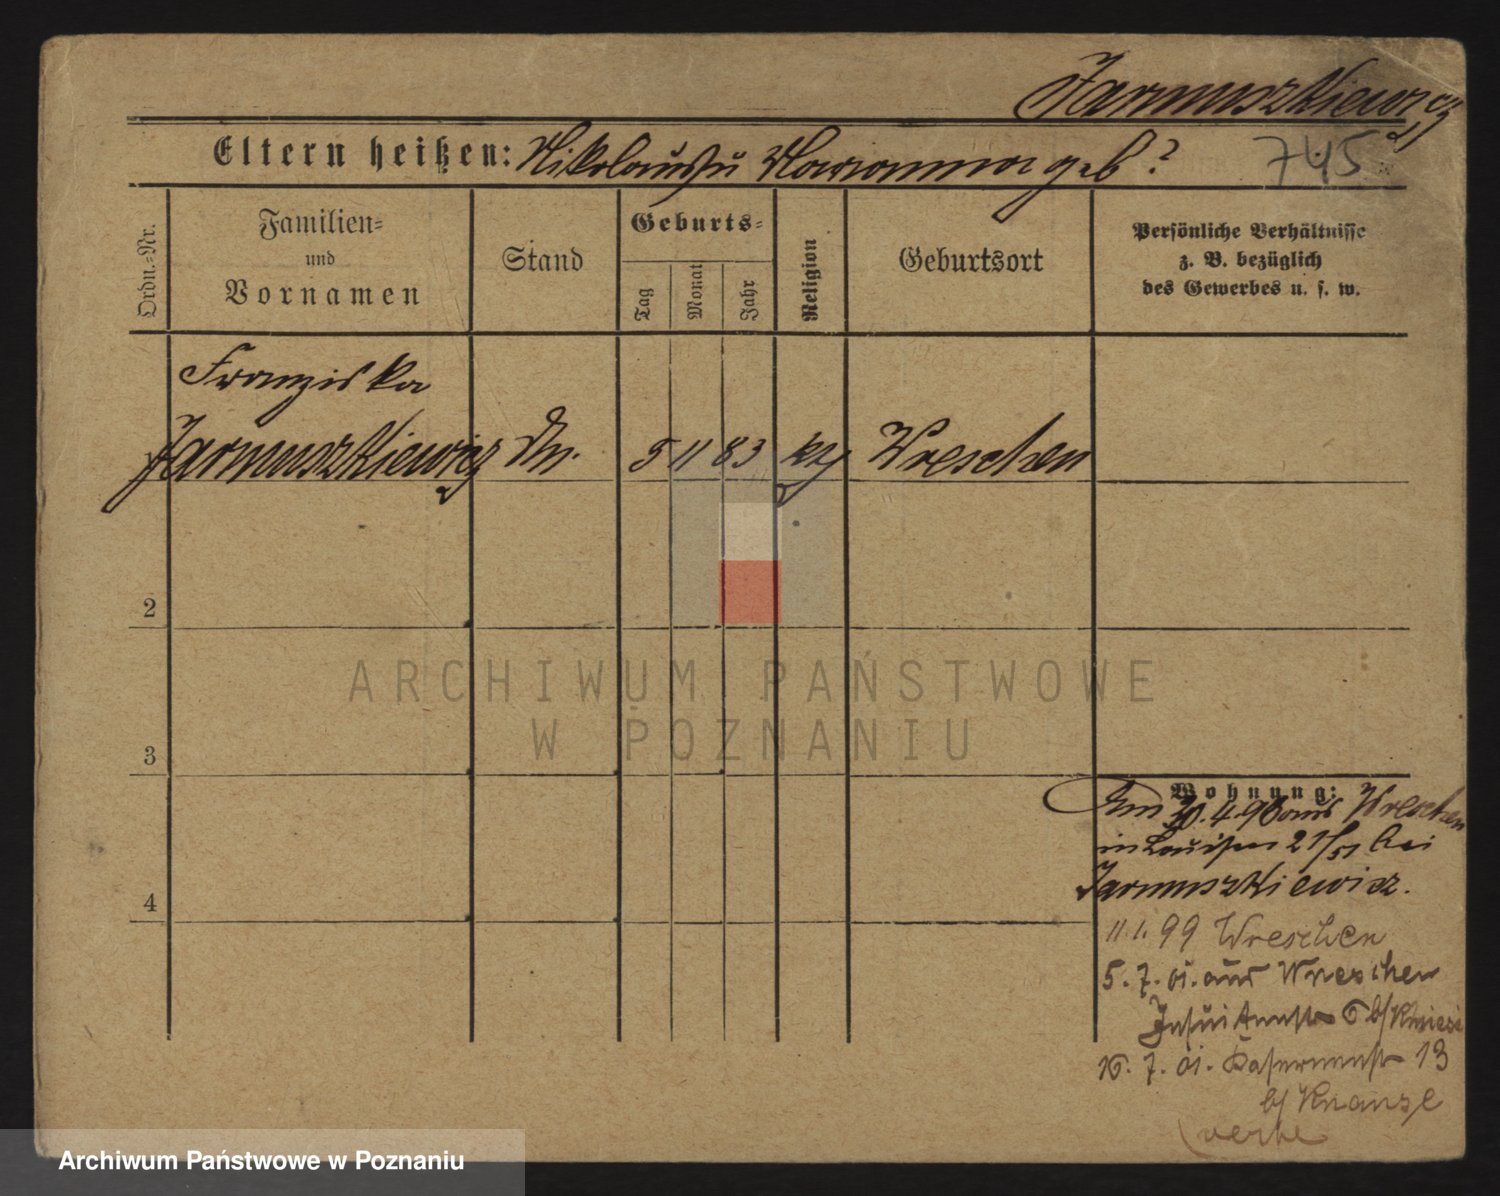 Jarmuszkiewicz
Eltern heißen: Nikolaus u Marianna geb?
745
Ordn.-Nr.
Familien-
und
Vornamen
Stand
Geburts-
Tag
Monat
Jahr
Religion
Geburtsort
Persönliche Verhältnisse
z. B. bezüglich
des Gewerbes u. s. w.
Franziska
Jarmuszkiewicz Dn. 5 11 83 kth Wreschen
2
3
4
Wohnung:
20.4.96 aus Wreschen
in Louisen 21/ bei
Jarmuszkiewicz.
11.1.99 Wreschen
5.7.01. aus Wreschen
Jesuitenstr 6 b/
16.7.01. Kasernenstr 13
b/
ARCHIWUM PAŃSTWOWE
W POZNANIU
Archiwum Państwowe w Poznaniu